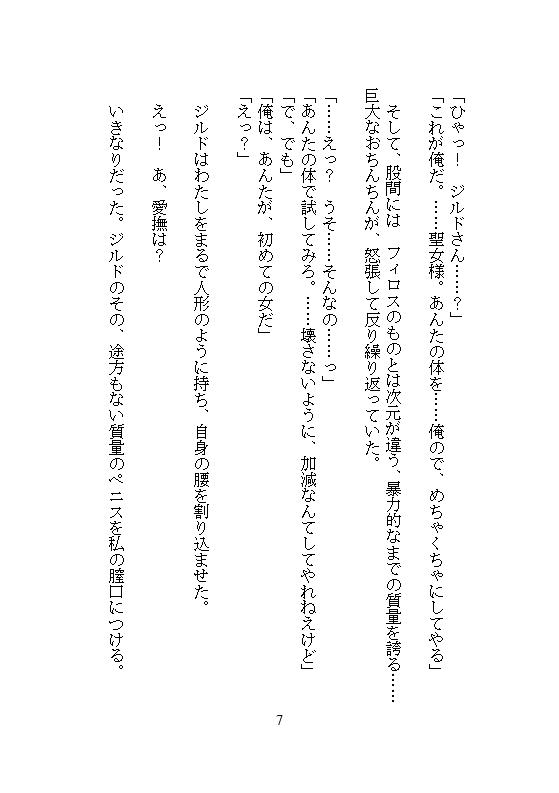 「ひゃっ！　ジルドさん……？」
「これが俺だ。……聖女様。あんたの体を……俺ので、めちゃくちゃにしてやる」
そして、股間には　フィロスのものとは次元が違う、暴力的なまでの質量を誇る……
巨大なおちんちんが、怒張して反り繰り返っていた。
「……えっ？　うそ……そんなの……っ」
「あんたの体で試してみろ。……壊さないように、加減なんてしてやれねえけど」
「で、でも」
「俺は、あんたが、初めての女だ」
「えっ？」
ジルドはわたしをまるで人形のように持ち、自身の腰を割り込ませた。
えっ！　あ、愛撫は？
いきなりだった。ジルドのその、途方もない質量のペニスを私の膣口につける。
7